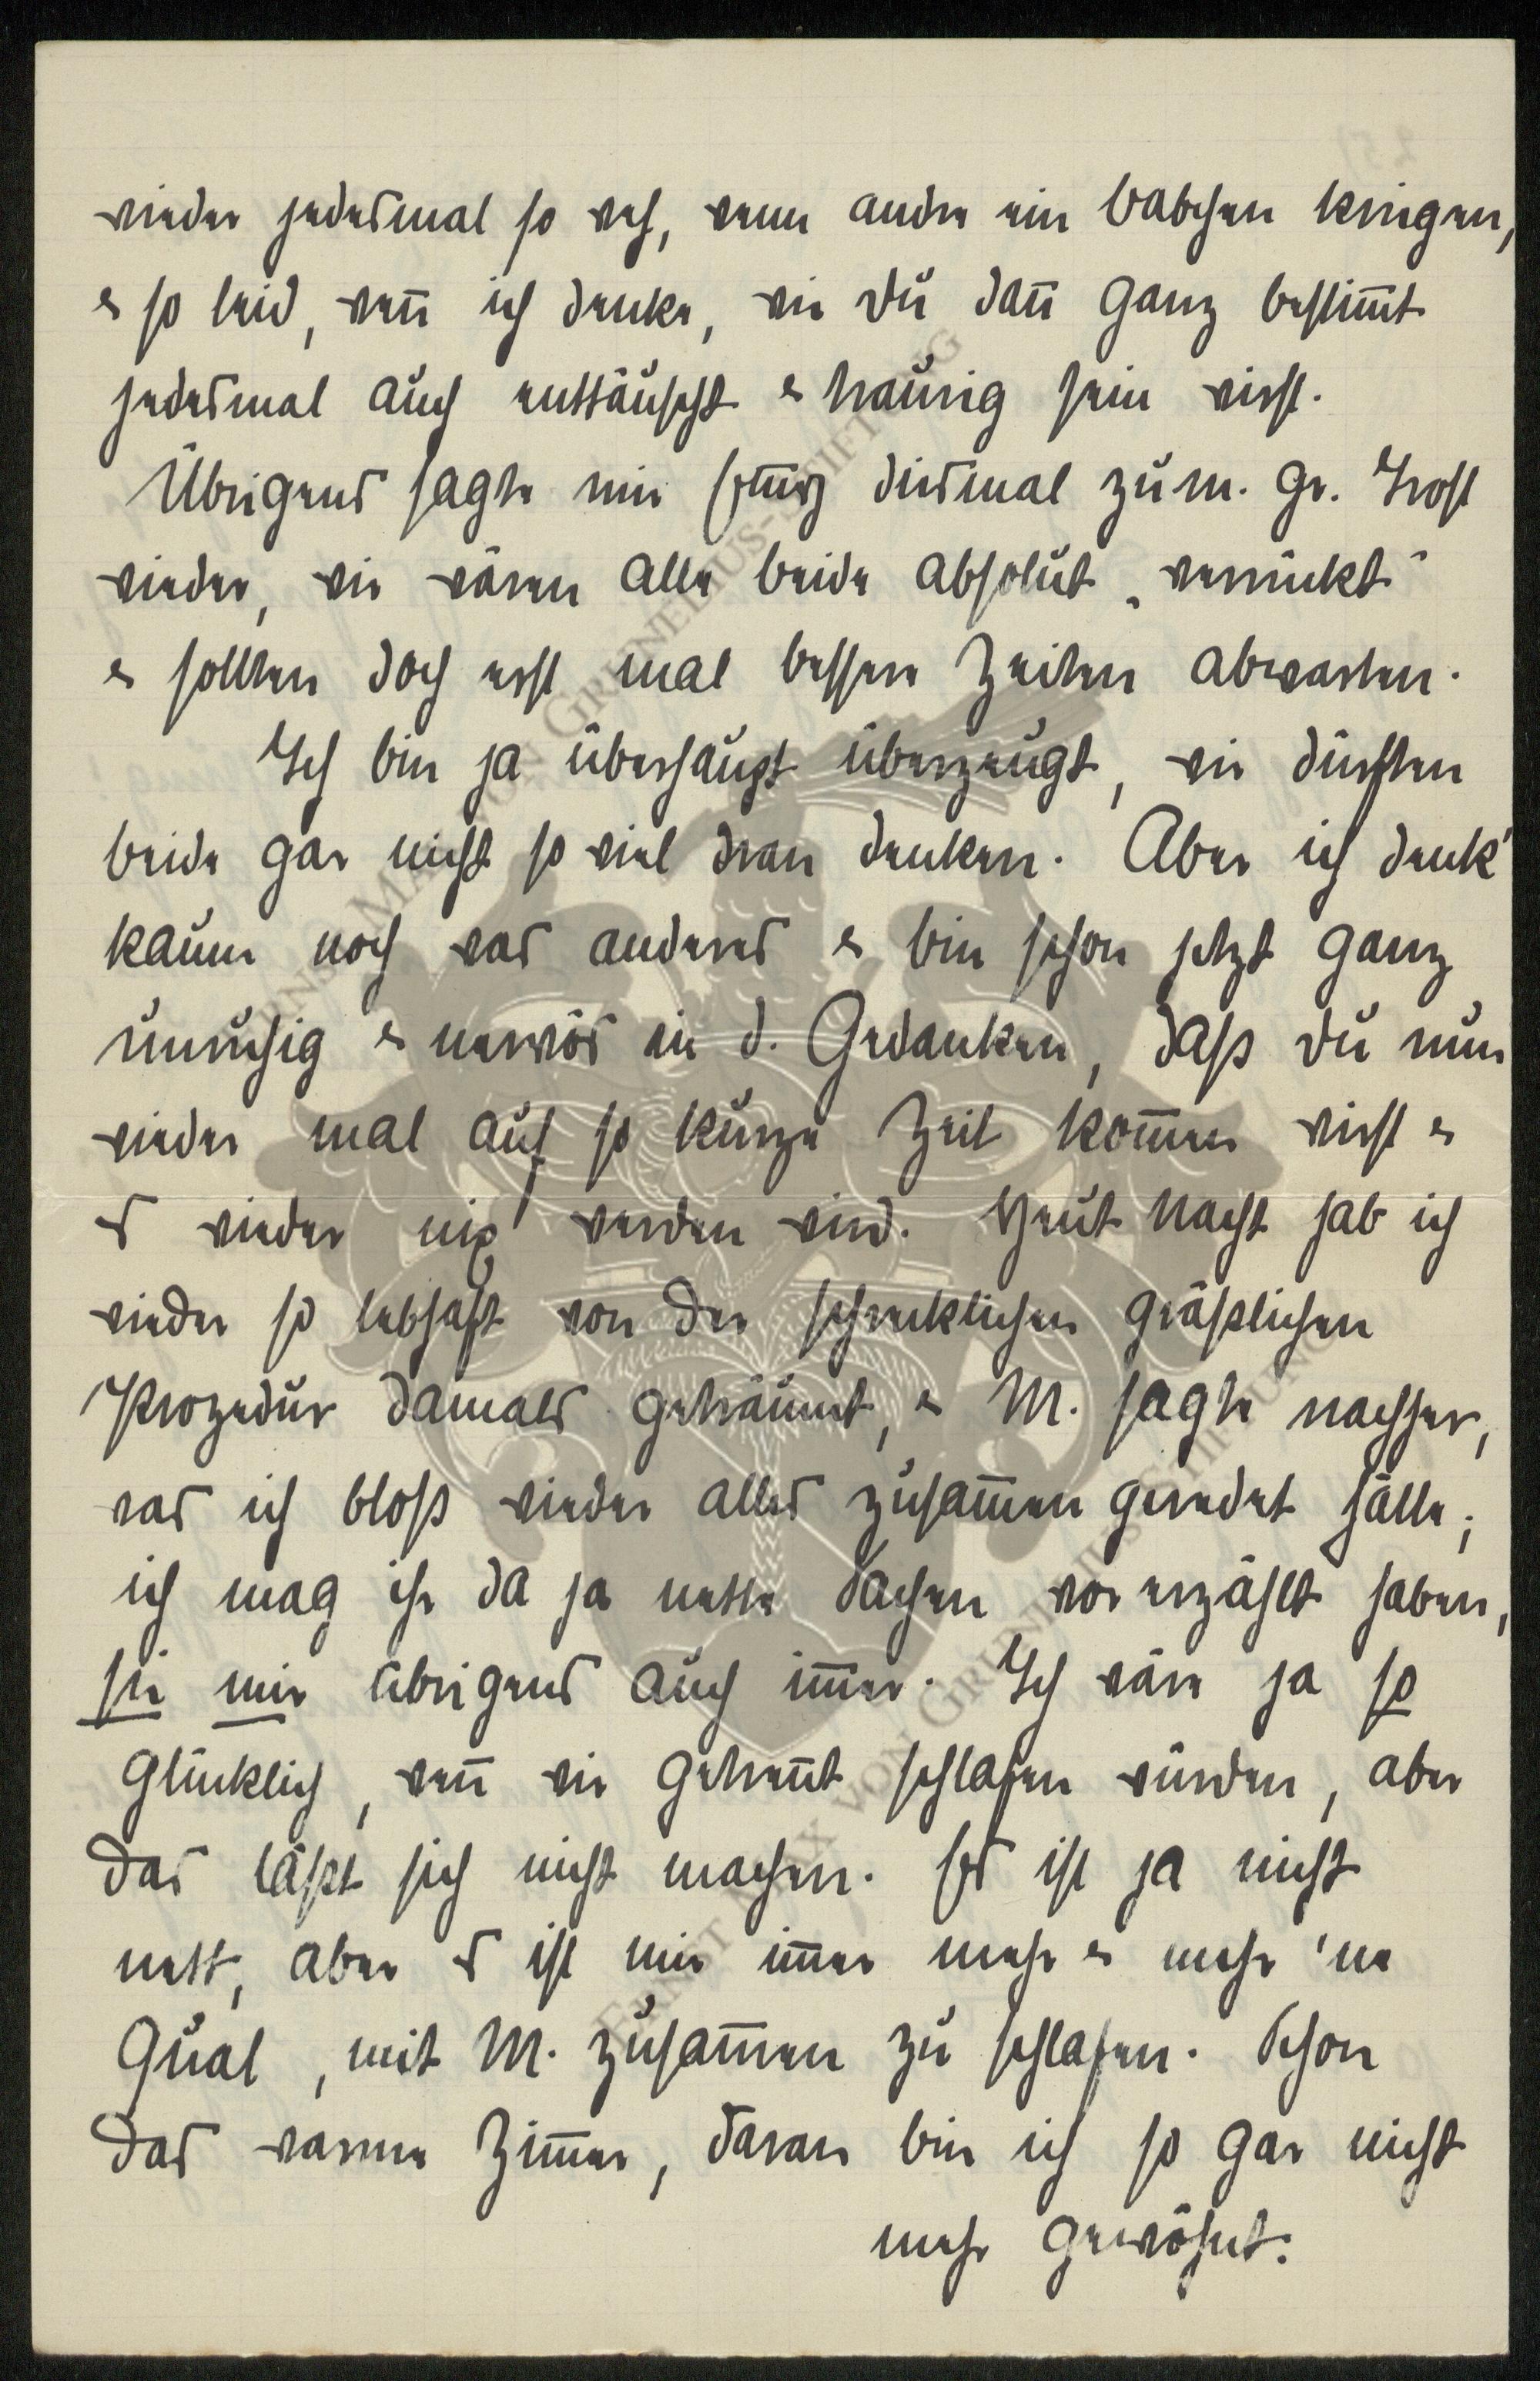 wieder jedesmal so weh, wenn andre ein Babchen kriegen,
& so leid, weñ ich denke, wie Du dañ ganz bestim̄t
jedesmal auch enttäuscht & traurig sein wirst.
Übrigens sagte mir diesmal zu m. gr. Trost
wieder, wir wären alle beide absolut „verrückt“
& sollten doch erst mal bessere Zeiten abwarten.
Ich bin ja überhaupt überzeugt, wir dürften
beide gar nicht so viel dran denken. Aber ich denk'
kaum noch was anderes & bin schon jetzt ganz
unruhig & nervös in d. Gedanken, daß Du nun
wieder mal auf so kurze Zeit kom̄en wirst &
s wieder nix werden wird. Heut Nacht hab ich
wieder so lebhaft von der schrecklichen gräßlichen
Prozedur damals geträumt, & M. sagte nachher,
was ich bloß wieder alles zusam̄en geredet hätte;
ich mag ihr da ja nette Sachen vorerzählt haben,
sie mir übrigens auch im̄er. Ich wäre ja so
glücklich, weñ wir getreñt schlafen würden, aber
das läßt sich nicht machen. Es ist ja nicht
nett, aber s ist mir im̄er mehr & mehr 'ne
Qual, mit M. zusam̄en zu schlafen. Schon
das warme Zim̄er, daran bin ich so gar nicht
mehr gewöhnt.
ERNST MAX VON GRUNELIUS-STIFTUNG
ERNST MAX VON GRUNELIUS-STIFTUNG